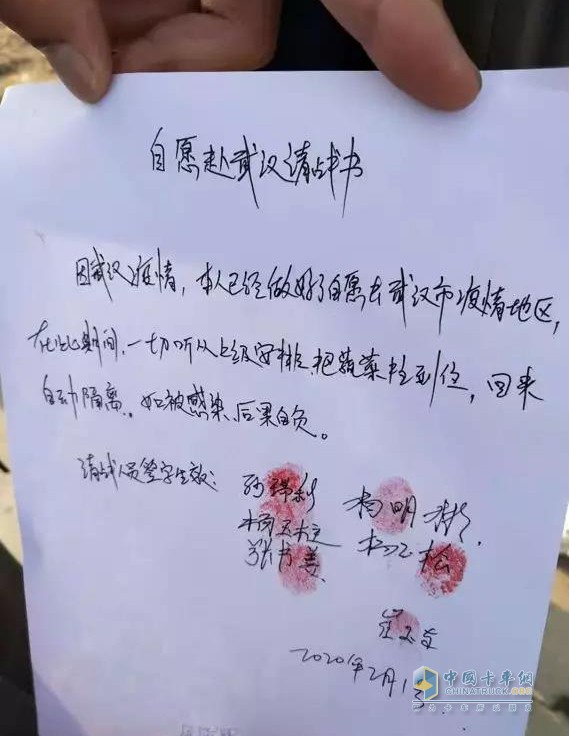 自愿赴武汉请战书
因武汉疫情,本人已经做好了自愿去武汉市疫情地区,
在此期间,一切听从上级安排,把蔬菜拉到位,回来
自动隔离。如被感染,后果自负。
请战人员签字生效:
孙瑞利 杨明彬
杨玉柱 松
张书姜
崔
2020年2月13
中国卡车网
CHINATRUCK.ORG